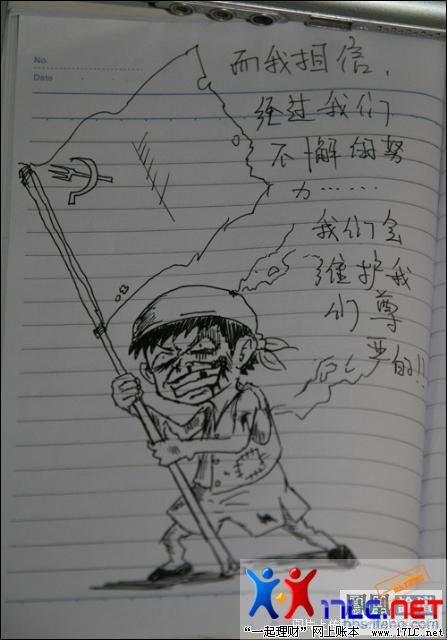 No.
Date
而我相信,
经过我们
不懈的努
力……
我们会
维护我
们尊
严的!!
凤凰
17LC.NET
bbs.ifeng.com
“一起理财”网上账本 www.17LC.net